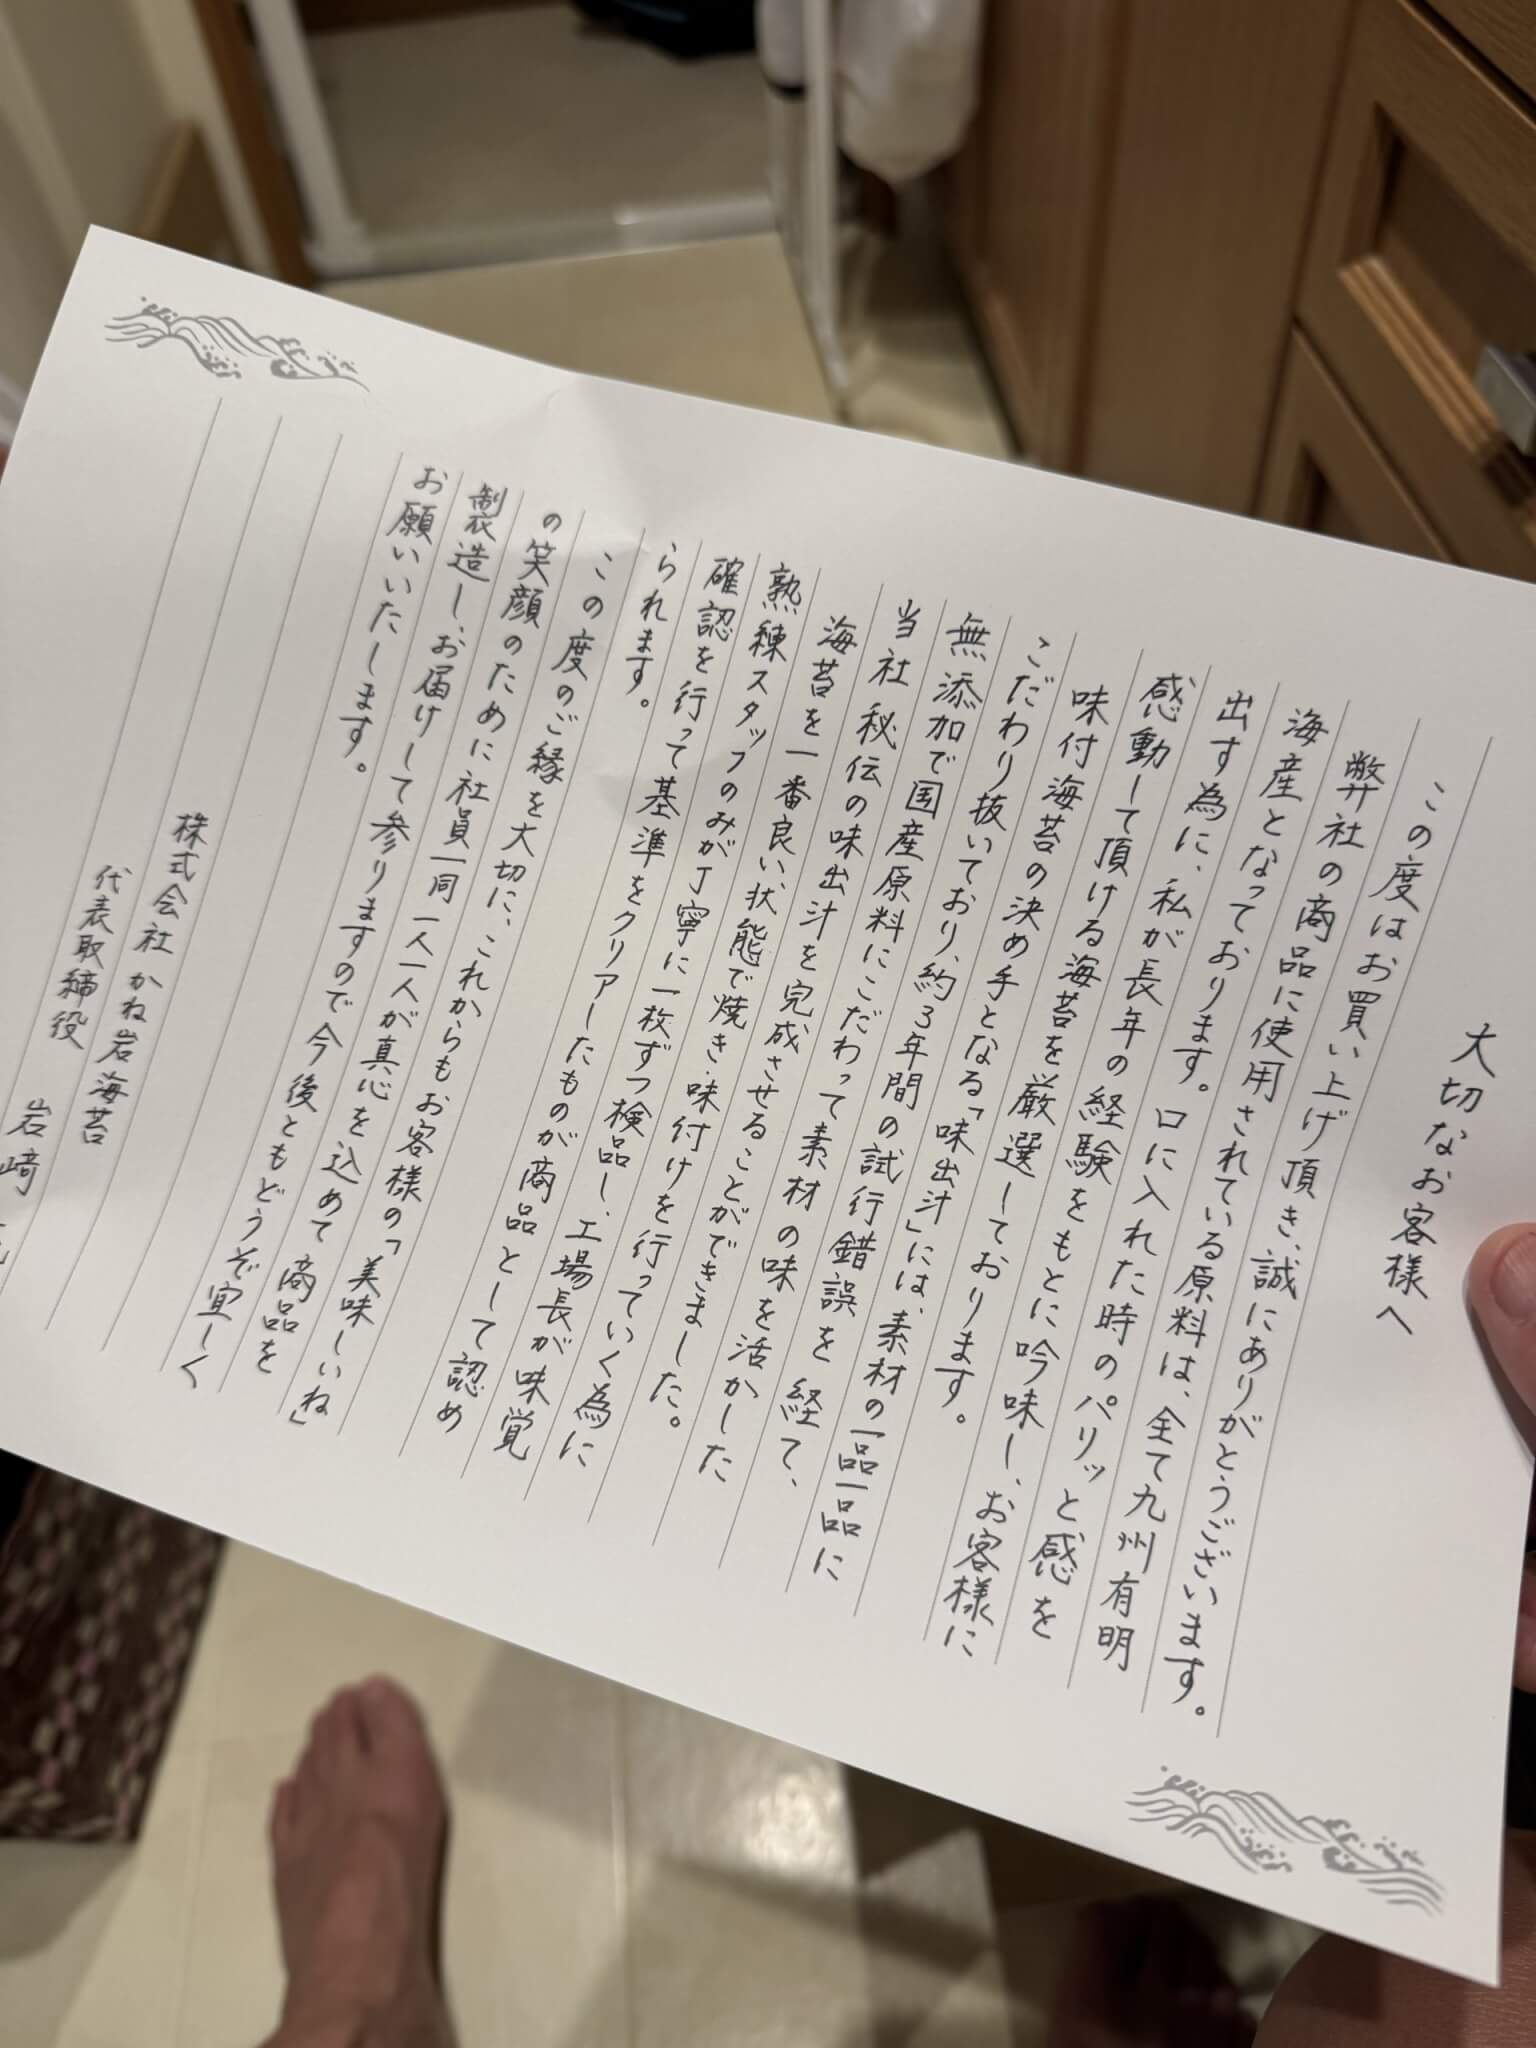 大切なお客様へ
この度はお買い上げ頂き、誠にありがとうございます。
弊社の商品に使用されている原料は、全て九州有明
海産となっております。口に入れた時のパリッと感を
出す為に、私が長年の経験をもとに吟味し、お客様に
感動して頂ける海苔を厳選しております。
味付海苔の決め手となる「味出汁」には、素材の一品一品に
こだわり抜いており、約3年間の試行錯誤を経て、
無添加で国産原料にこだわって素材の味を活かした
当社秘伝の味出汁を完成させることができました。
海苔を一番良い状態で焼き・味付けを行っていく為に
熟練スタッフのみが丁寧に一枚ずつ検品し、工場長が味覚
確認を行って基準をクリアーしたものが商品として認め
られます。
この度のご縁を大切に、これからもお客様の「美味しいね」
の笑顔のために社員一同一人一人が真心を込めて商品を
製造し、お届けして参りますので今後ともどうぞ宜しく
お願いいたします。
株式会社かね岩海苔
代表取締役 岩﨑